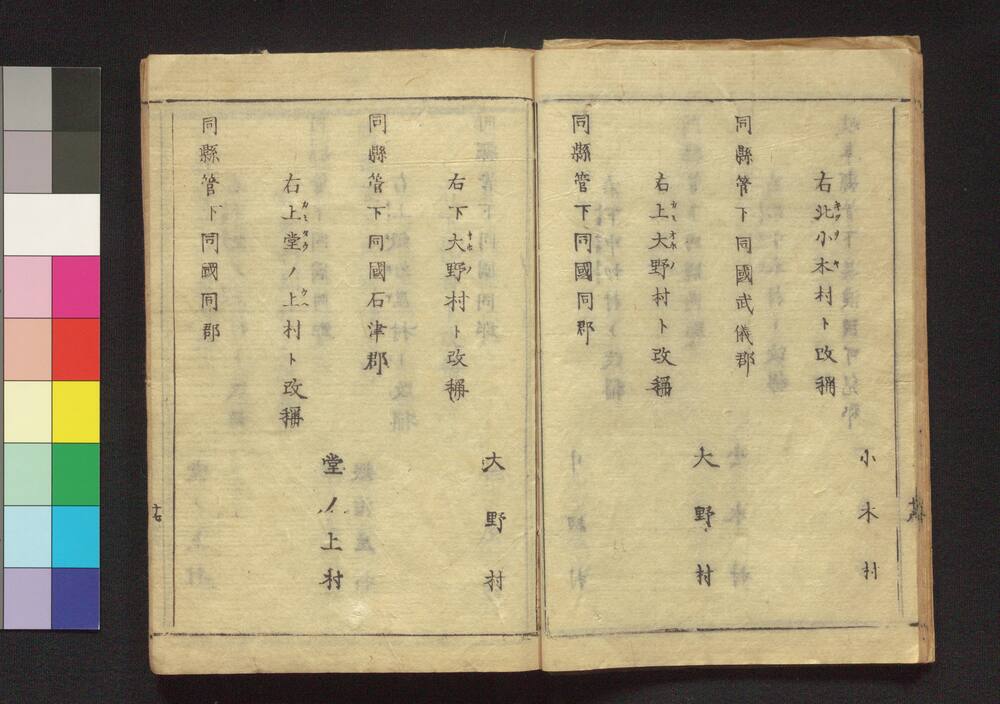 小木村
右北小木村ト改稱
同縣管下同國武儀郡
大野村
右上大野村ト改稱
カミオホノ
同縣管下同國同郡
大野村
右下大野村ト改稱
オホノ
同縣管下同國石津郡
堂ノ上村
右上堂ノ上村ト改稱
カミダウ ウヘ
同縣管下同國同郡